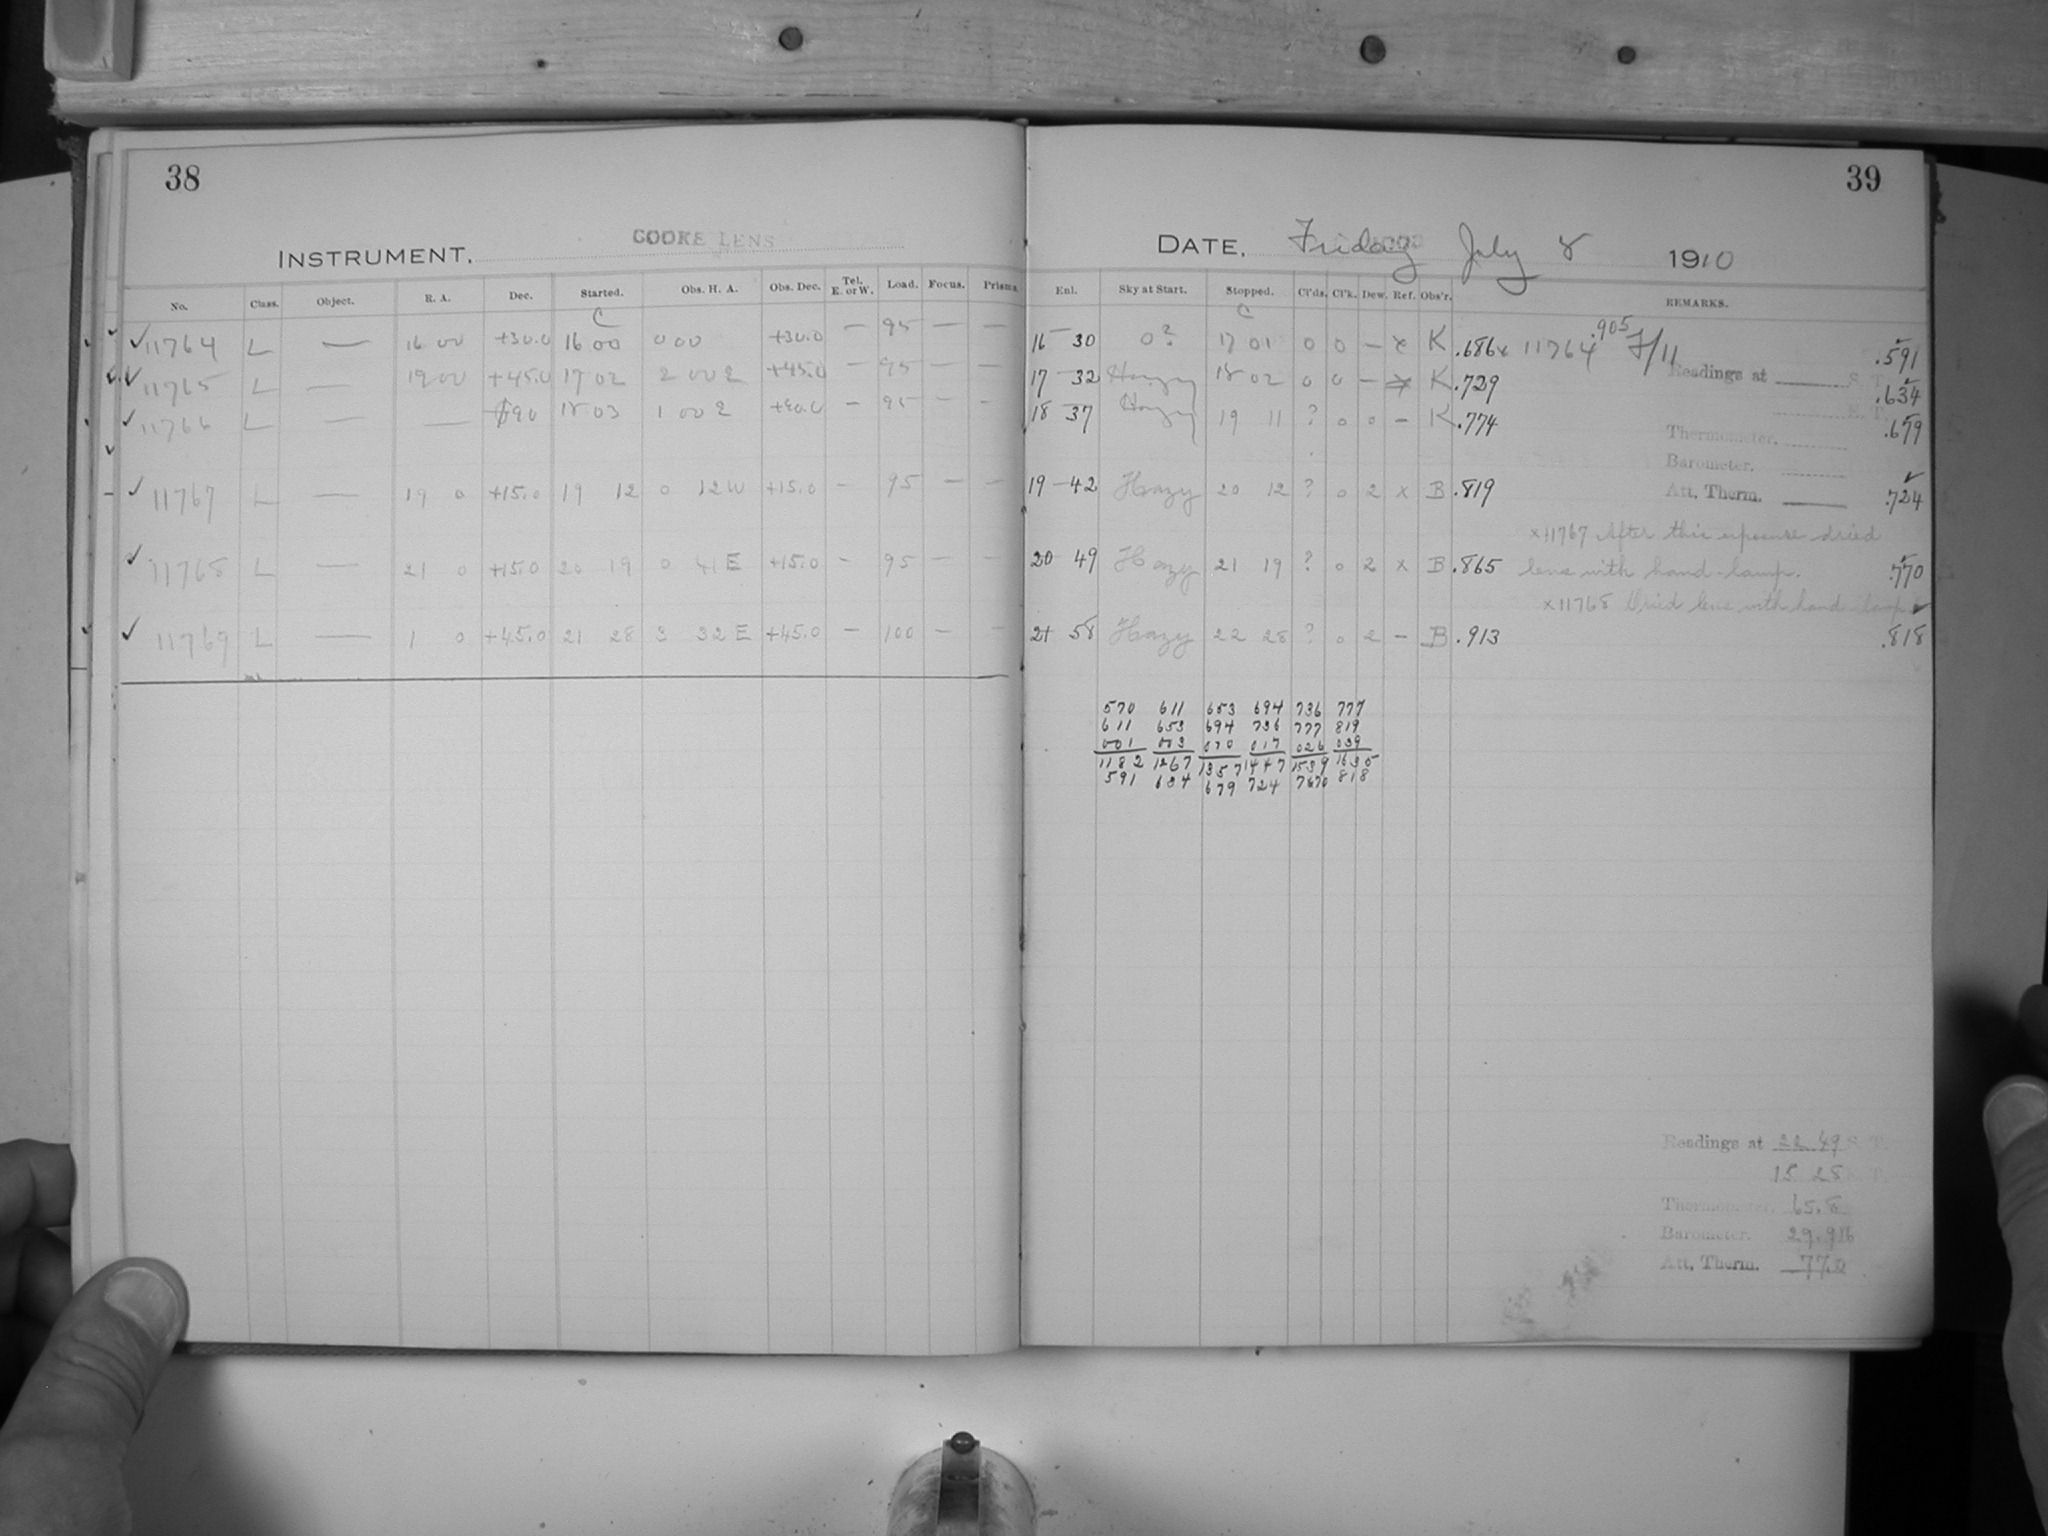 38
39
INSTRUMENT. COOKE LENS
DATE. Friday July 8 1910
No. Class. Object. R. A. Dec. Started. Obs. H. A. Obs. Dec. Tel. E. or W. Load. Focus. Prisms Enl. Sky at Start. Stopped. Cl'ds. Cl'k. Dew. Ref. Obs'r. REMARKS.
C C
✓11764 L — 16 00 +30.0 16 00 0 00 +30.0 — 95 — — 16 30 0? 17 01 0 0 — x K .686 x 11764 .905 F/11 .591
✓11765 L — 19 00 +45.0 17 02 2 00 E +45.0 — 95 — — 17 32 Hazy 18 02 0 0 — x K .729 Readings at S. T. .634
✓11766 L — — +90 18 03 1 00 E +90.0 — 95 — — 18 37 Hazy 19 11 ? 0 0 — K .774 E. T. .679
Thermometer.
Barometer.
✓11767 L — 19 0 +15.0 19 12 0 12W +15.0 — 95 — — 19 42 Hazy 20 12 ? 0 2 x B .819 Att. Therm. .724
x 11767 After this exposure dried
✓11768 L — 21 0 +15.0 20 19 0 41 E +15.0 — 95 — — 20 49 Hazy 21 19 ? 0 2 x B .865 lens with hand-lamp. .770
x 11768 Dried lens with hand lamp
✓11769 L — 1 0 +45.0 21 28 3 32 E +45.0 — 100 — — 21 58 Hazy 22 28 ? 0 2 — B .913 .818
570 611 653 694 736 777
611 653 694 736 777 819
001 003 010 017 026 039
1182 1267 1357 1447 1539 1635
591 634 679 724 7670 818
Readings at 22 49 S. T.
15 28 E. T.
Thermometer. 65.8
Barometer. 29.916
Att. Therm. 77.0